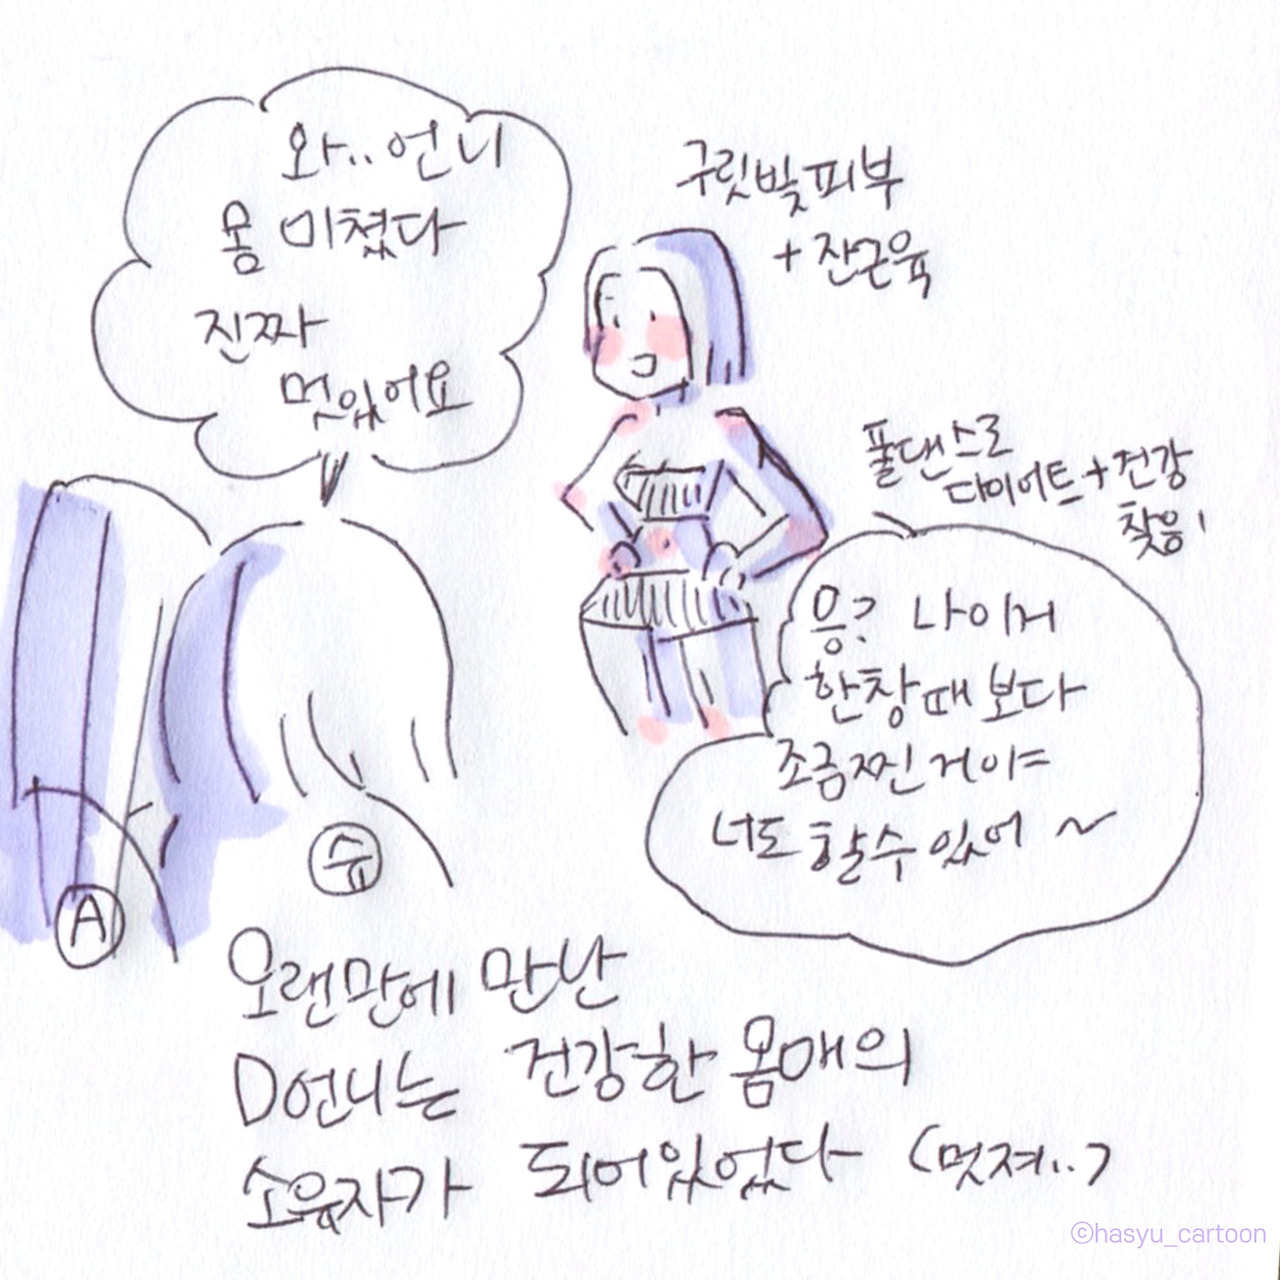 와.. 언니
몸 미쳤다
진짜
멋있어요
구릿빛피부
+ 잔근육
폴댄스로
다이어트+건강
찾음!
응? 나 이거
한창때 보다
조금찐 거야
너도 할수 있어 ~
슈
A
오랜만에 만난
D언니는 건강한 몸매의
소유자가 되어있었다 (멋져..)
©hasyu_cartoon